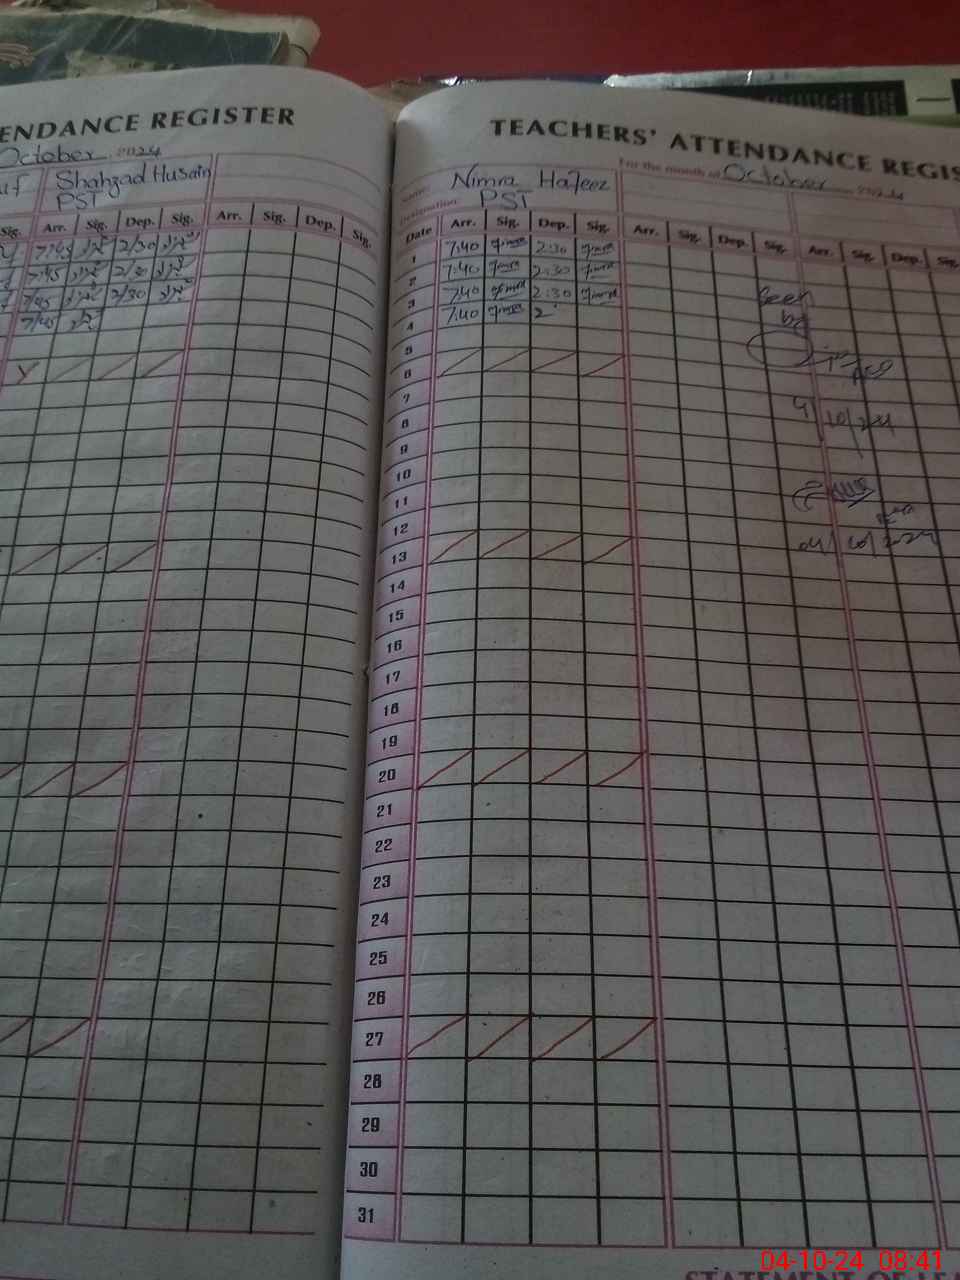 ENDANCE REGISTER
October 2024
Shahzad Husain
PST
Sig. Arr. Sig. Dep. Sig. Arr. Sig. Dep. Sig.
7:45 2/30
7:45 2/30
7/45 2/30
7/45
TEACHERS' ATTENDANCE REGIS
For the month of October 2024
Name: Nimra Hafeez
Designation: PST
Date Arr. Sig. Dep. Sig. Arr. Sig. Dep. Sig. Arr. Sig. Dep. Sig.
1 7:40 2:30
2 7:40 2:30
3 7:40 2:30
4 7:40 2
5
6
7
8
9
10
11
12
13
14
15
16
17
18
19
20
21
22
23
24
25
26
27
28
29
30
31
Seen
by
4/10/24
04/10/2024
STATEMENT OF
04-10-24 08:41